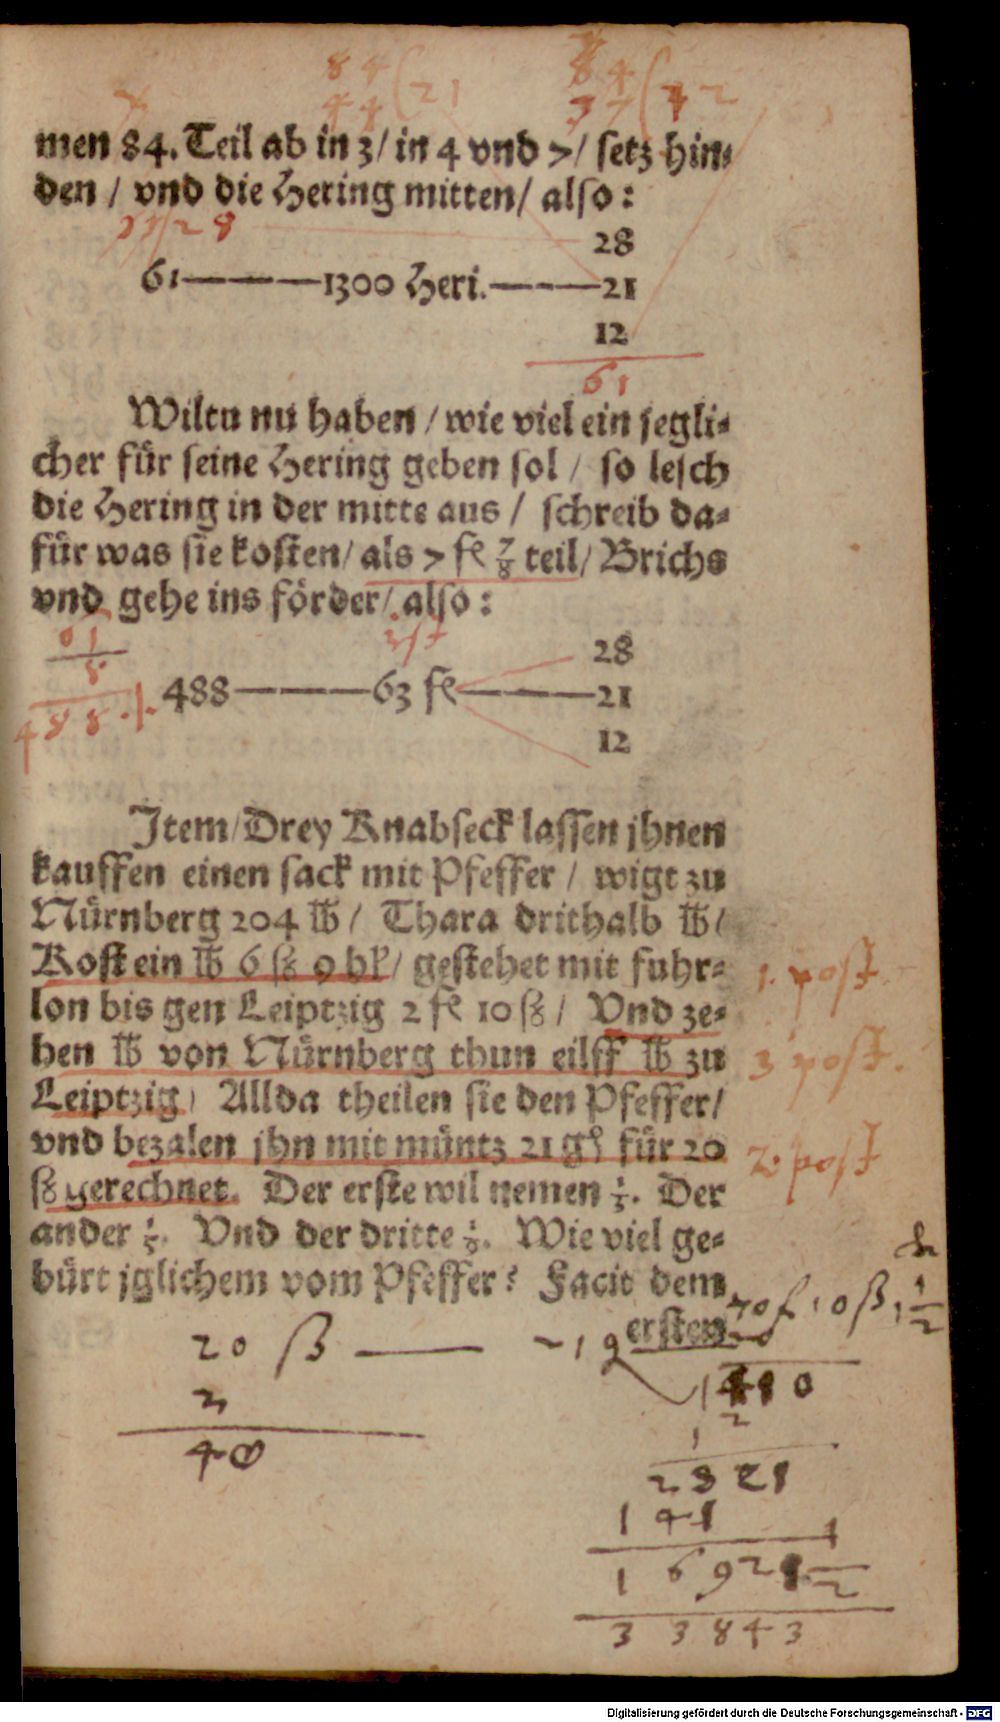 84 ( 21
44
84 ( 42
men 84. Teil ab in 3/ in 4 vnd 7/ setz hin-
den / vnd die Hering mitten/ also:
28
61———1300 Heri.———21
12
61
Wiltu nu haben / wie viel ein jegli-
cher für seine Hering geben sol / so lesch
die Hering in der mitte aus / schreib da-
für was sie kosten/ als 7 fl 7/8 teil/ Brichs
vnd gehe ins förder/ also:
61
8
488
28
488———63 fl———21
12
Item/ Drey Knabseck lassen jhnen
kauffen einen sack mit Pfeffer / wigt zu
Nürnberg 204 ℔/ Thara drithalb ℔/
Kost ein ℔ 6 ß 9 hl/ gestehet mit fuhr-
lon bis gen Leiptzig 2 fl 10 ß/ Vnd ze-
1. post
hen ℔ von Nürnberg thun eilff ℔ zu
3 post.
Leiptzig/ Allda theilen sie den Pfeffer/
vnd bezalen jhn mit müntz 21 gℓ für 20
2. post
ß gerechnet. Der erste wil nemen 1/3. Der
ander 1/5. Vnd der dritte 1/8. Wie viel ge-
bürt jglichem vom Pfeffer? Facit dem
ersten
70 f 10 ß 1 1/2
20 ß —— 21 g
1410
2
2
40
2821
141
16921 1/2
33843
Digitalisierung gefördert durch die Deutsche Forschungsgemeinschaft - DFG